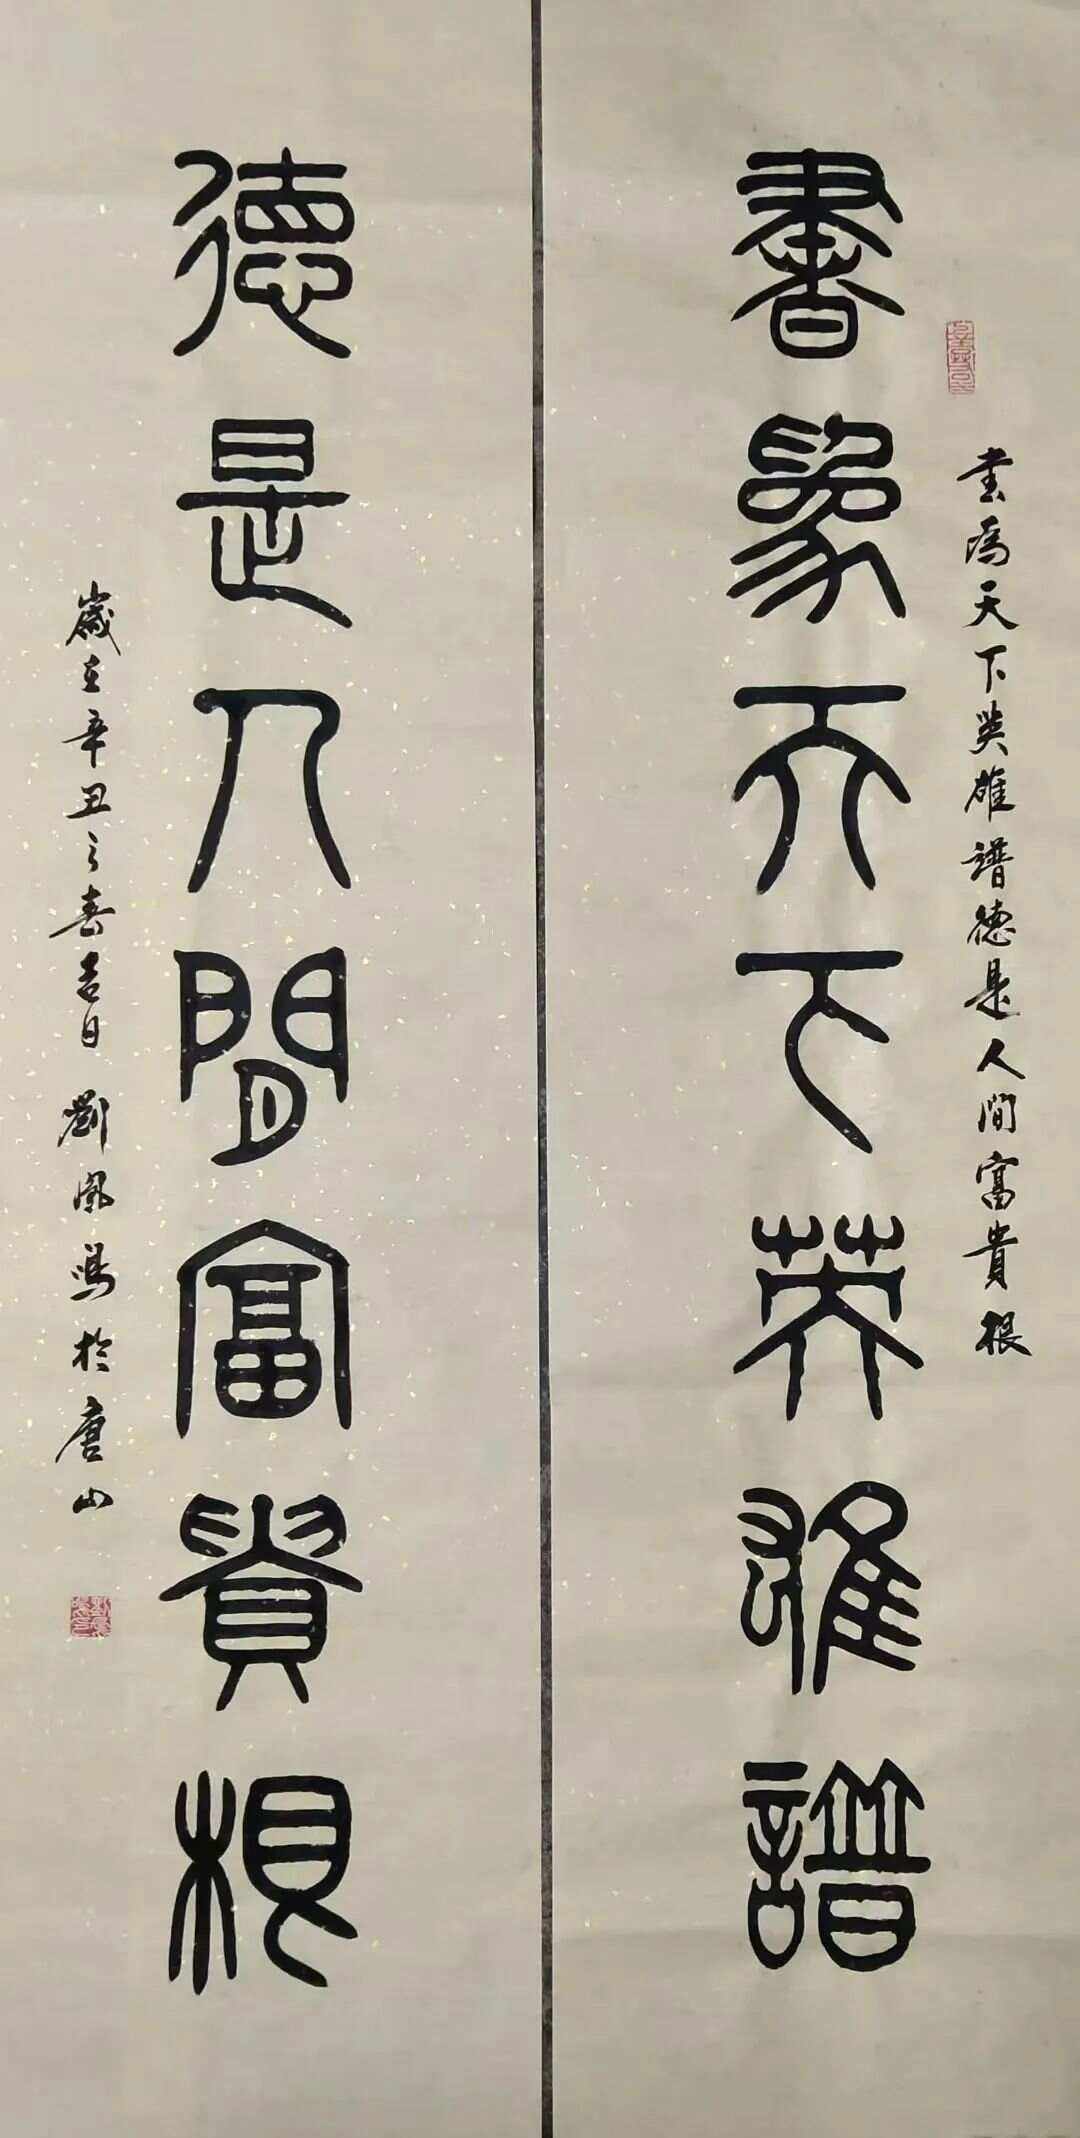 書為天下英雄譜
書為天下英雄譜德是人間富貴根
德是人間富貴根
歲在辛丑之春吉日劉鳳鳴於唐山